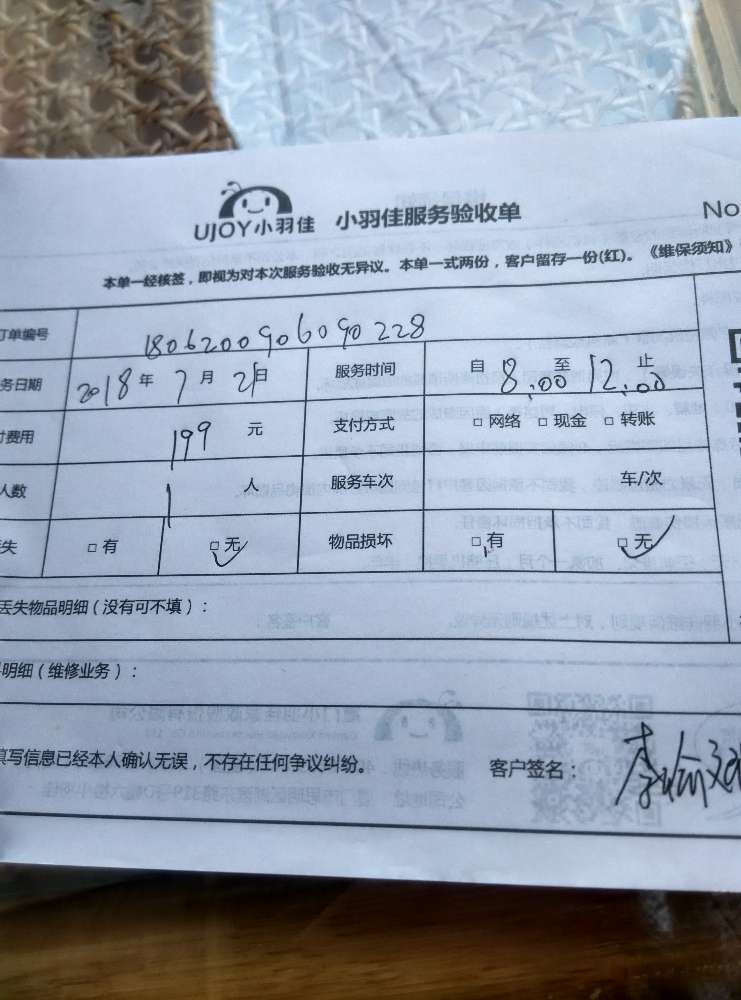 UJOY小羽佳 小羽佳服务验收单 No
本单一经核签，即视为对本次服务验收无异议。本单一式两份，客户留存一份(红)。《维保须知》
订单编号 1806200906090228
务日期 2018年 7月 21日 服务时间 自 8:00 至 12:00 止
付费用 199 元 支付方式 □网络 □现金 □转账
人数 1 人 服务车次 车/次
失 □有 □无 物品损坏 □有 □无
丢失物品明细（没有可不填）：
明细（维修业务）：
填写信息已经本人确认无误，不存在任何争议纠纷。 客户签名：李